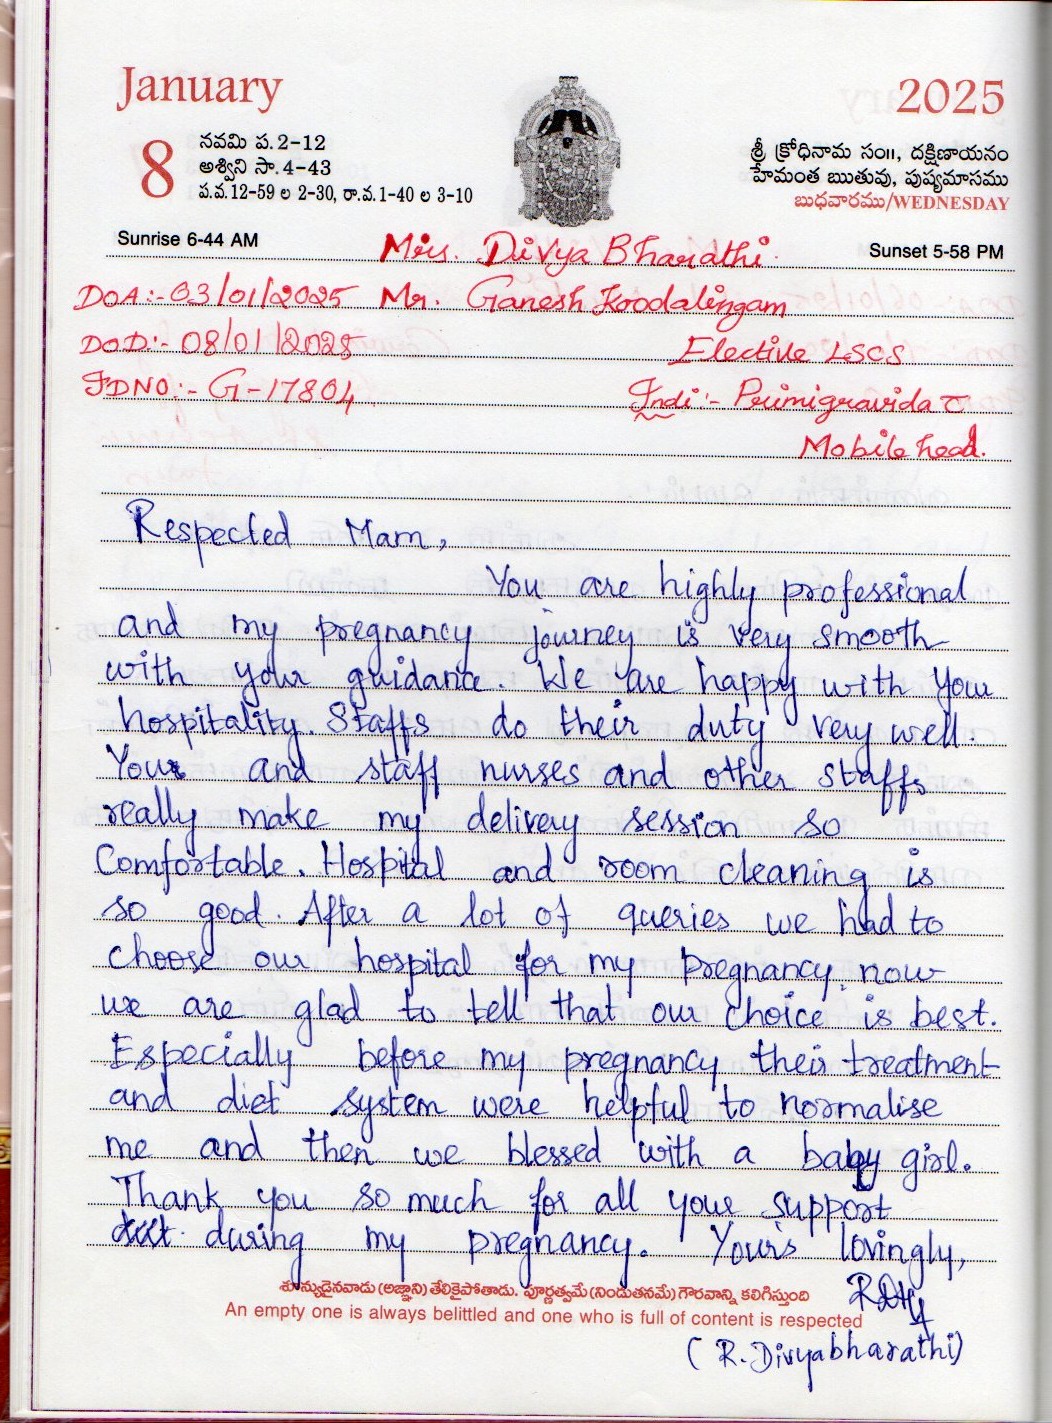 January
2025
8
నవమి ప.2-12
అశ్విని సా.4-43
ప.వ.12-59 ల 2-30, రా.వ.1-40 ల 3-10
శ్రీ క్రోధినామ సం॥, దక్షిణాయనం
హేమంత ఋతువు, పుష్యమాసము
బుధవారము/WEDNESDAY
Sunrise 6-44 AM
Sunset 5-58 PM
Mrs. Divya Bharathi.
DOA:-03/01/2025 Mr. Ganesh Koodalingam
DOD:- 08/01/2025 Elective LSCS
IDNO:- G-17804 Indi:- Primigravida c̄
Mobile head.
Respected Mam,
You are highly professional
and my pregnancy journey is very smooth
with your guidance. We are happy with your
hospitality. Staffs do their duty very well.
Your and staff nurses and other staffs
really make my delivery session so
Comfortable. Hospital and room cleaning is
so good. After a lot of queries we had to
choose our hospital for my pregnancy, now
we are glad to tell that our choice is best.
Especially before my pregnancy their treatment
and diet system were helpful to normalise
me and then we blessed with a baby girl.
Thank you so much for all your support
during my pregnancy. Your's lovingly,
శూన్యుడైనవాడు (అజ్ఞాని) తేలికైపోతాడు. పూర్ణత్వమే (నిండుతనమే) గౌరవాన్ని కలిగిస్తుంది
An empty one is always belittled and one who is full of content is respected
(R. Divyabharathi)